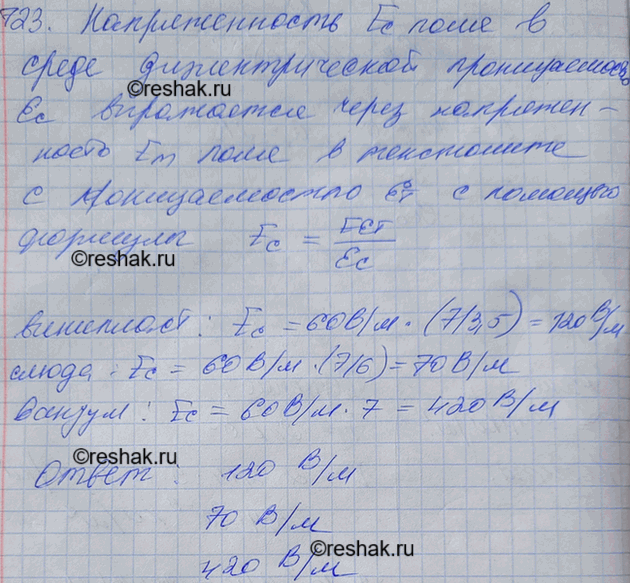 723. Напряженность Ec поле в
среде диэлектрической проницаемость
©reshak.ru
Ec выражается через напряжен-
ность Em поле в текстолите
с проницаемостью с помощью
формулы Ec = EET/Ec
©reshak.ru
винипласт: Ec = 60В/м · (7/3,5) = 120 В/м
слюда. Ec = 60 В/м · (7/6) = 70 В/м
Вакуум: Ec = 60 В/м · 7 = 420 В/м
©reshak.ru
Ответ: 120 В/м
70 В/м
©reshak.ru
420 В/м